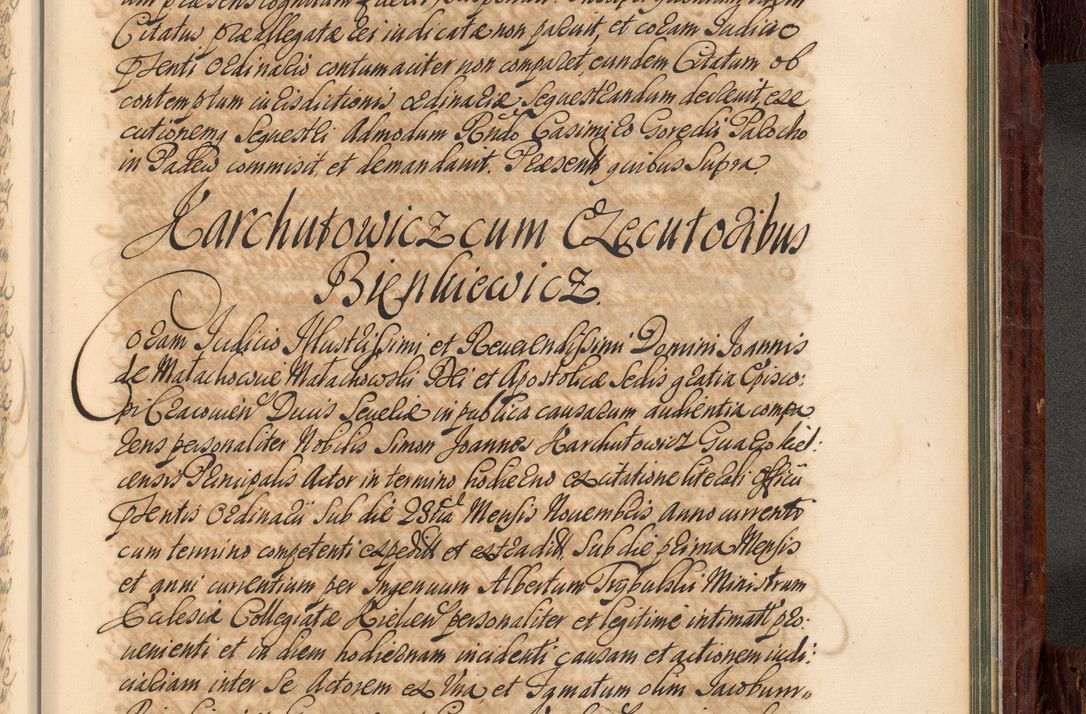 Citatus præallegatæ rei iudicatæ non paruit, et coram Iudicio
Pſenti Ordinario contumaciter non comparet, eundem Citatum ob
contemptum iurisdictionis ordinariæ Sequestrandum decreuit, exe
cutionemq Sequestri Admodum Rndo Casimiro Palocho
in Radków commisit, et demandauit. Præsentt quibus Supra.
Karchutowicz cum Executoribus
Bienkiewicz.
Coram Iudicio Illustrissimi et Reuerendissimi Domini Ioannis
de Małachowice Małachowski Dei et Apostolicæ Sedis gratia Episco:
pi Cracouien Ducis Seueriæ in publica causarum audientia compa
rens personaliter Nobilis Simon Ioannes Karchutowicz
censis Principalis Actor in termino hodierno ex citatione literali Officii
Pſentis Ordinarii Sub die 28tia Mensis Nouembris anno currenti
cum termino competenti expeditt et extraditt Sub die prima Mensis
et anni currentium per Ingenuum Albertum Trybulski Ministrum
Eclesiæ Collegiatæ Kielcen personaliter et legitime intimatt pro:
uenienti et in diem hodiernam incidenti causam et actionem iudi:
ciariam inter Se Actorem ex Vna, et Famatum olim Iacobum